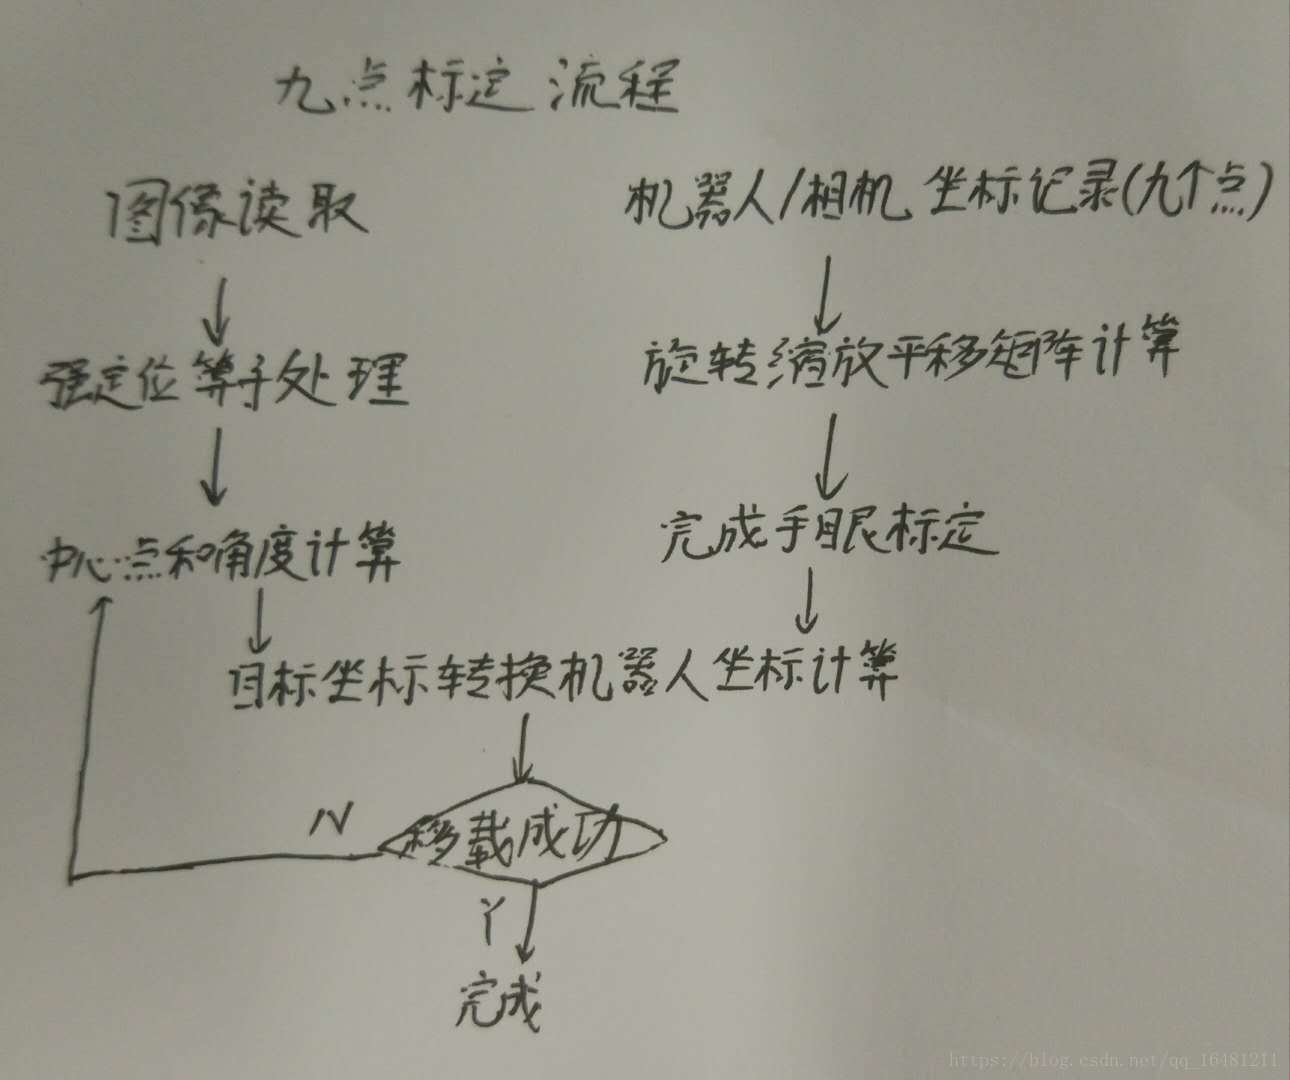 九点标定流程
图像读取
机器人/相机 坐标记录(九个点)
强定位等子处理
旋转缩放平移矩阵计算
中心点和角度计算
完成手眼标定
目标坐标转换机器人坐标计算
N
移载成功
Y
完成
https://blog.csdn.net/qq_16481211